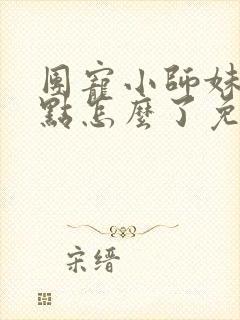 團寵小師妹
點怎麼了免
宋缙